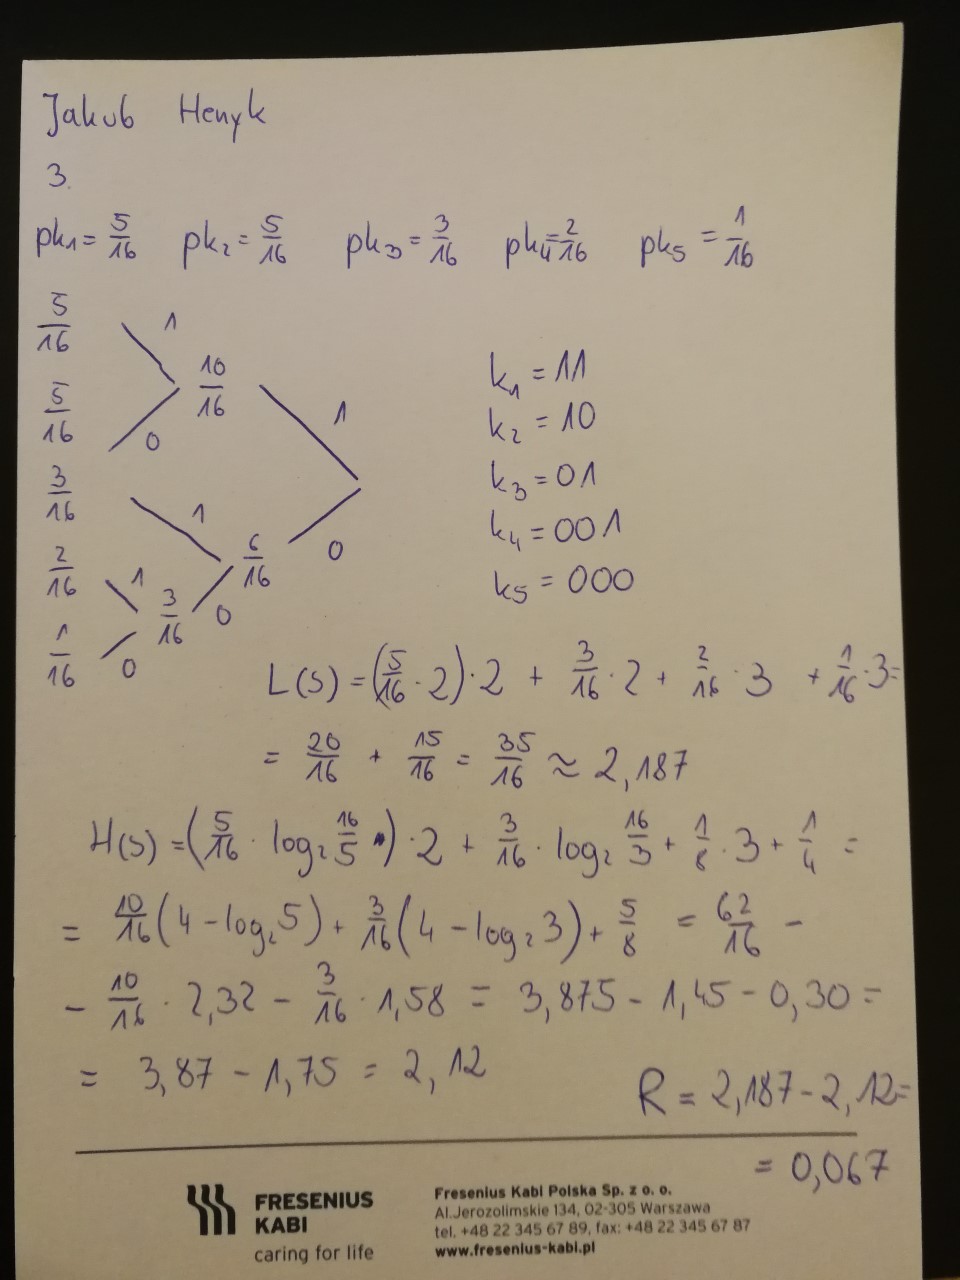 Jakub Henyk
3.
pk₁ = 5/16 pk₂ = 5/16 pk₃ = 3/16 pk₄ = 2/16 pk₅ = 1/16
5/16 1
10/16 k₁ = 11
5/16 0 1 k₂ = 10
3/16 1 k₃ = 01
6/16 0 k₄ = 001
2/16 1 3/16 0 k₅ = 000
1/16 0
L(S) = (5/16 · 2) · 2 + 3/16 · 2 + 2/16 · 3 + 1/16 · 3 =
= 20/16 + 15/16 = 35/16 ≈ 2,187
H(S) = (5/16 · log₂ 16/5) · 2 + 3/16 · log₂ 16/3 + 1/8 · 3 + 1/4 =
= 10/16 (4 - log₂5) + 3/16 (4 - log₂3) + 5/8 = 62/16 -
- 10/16 · 2,32 - 3/16 · 1,58 = 3,875 - 1,45 - 0,30 =
= 3,87 - 1,75 = 2,12
R = 2,187 - 2,12 =
= 0,067
FRESENIUS
KABI
caring for life
Fresenius Kabi Polska Sp. z o. o.
Al.Jerozolimskie 134, 02-305 Warszawa
tel. +48 22 345 67 89, fax: +48 22 345 67 87
www.fresenius-kabi.pl